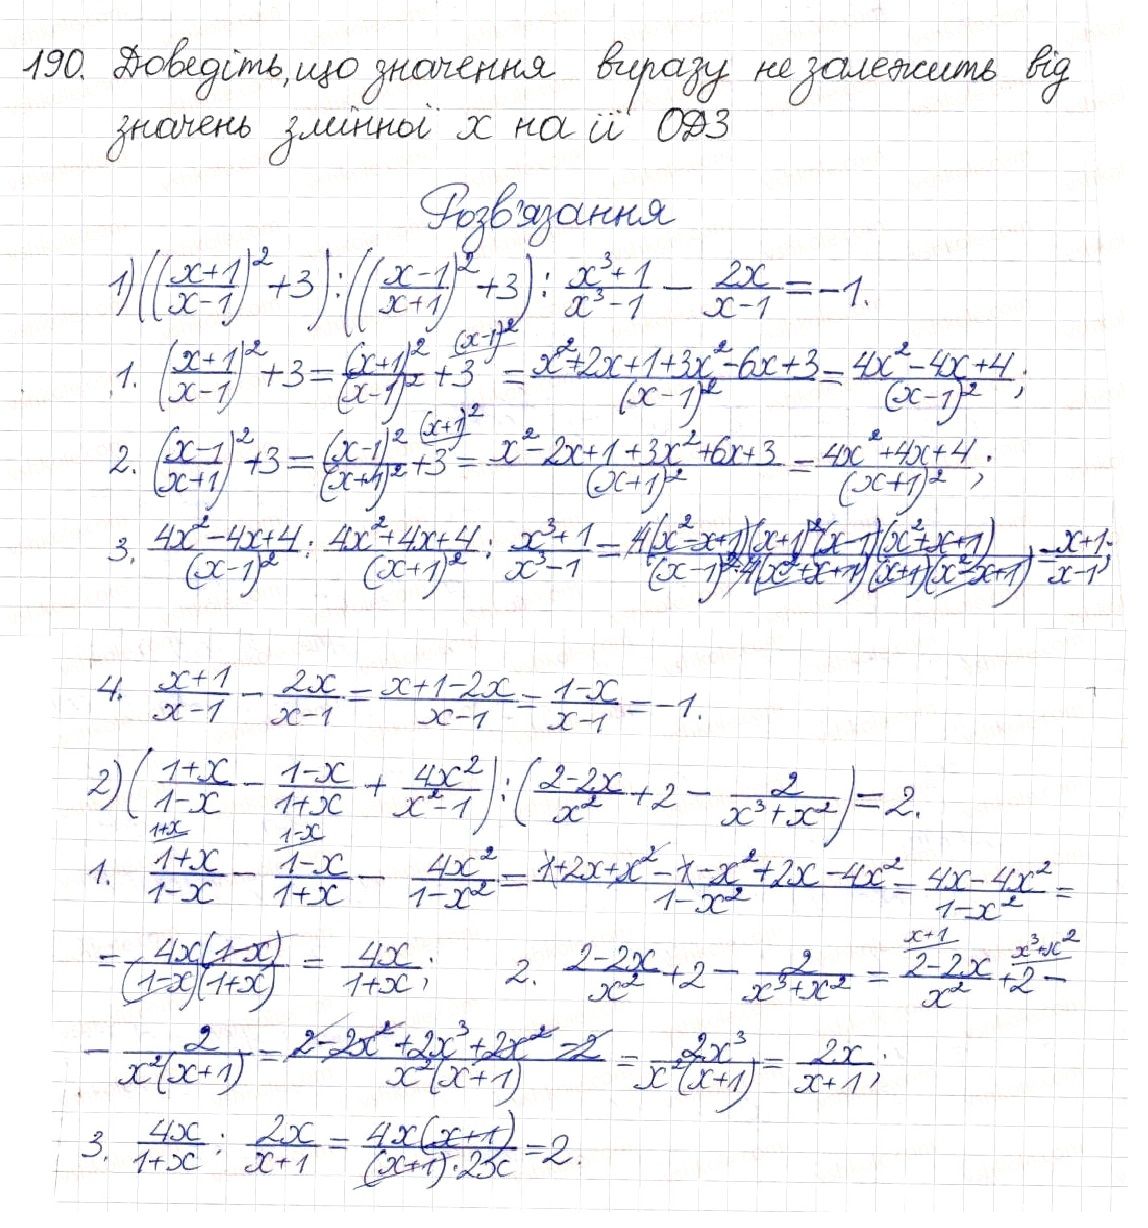 190. Доведіть, що значення виразу не залежить від
значень змінної x на її ОДЗ
Розв'язання
1) (((x+1)/(x-1))² + 3) : (((x-1)/(x+1))² + 3) : (x³+1)/(x³-1) - 2x/(x-1) = -1.
1. ((x+1)/(x-1))² + 3 = (x+1)²/(x-1)² + 3 (x-1)² = (x²+2x+1+3x²-6x+3)/(x-1)² = (4x²-4x+4)/(x-1)²;
2. ((x-1)/(x+1))² + 3 = (x-1)²/(x+1)² + 3 (x+1)² = (x²-2x+1+3x²+6x+3)/(x+1)² = (4x²+4x+4)/(x+1)²;
3. (4x²-4x+4)/(x-1)² : (4x²+4x+4)/(x+1)² : (x³+1)/(x³-1) = 4(x²-x+1)(x+1)²(x-1)(x²+x+1)/((x-1)²·4(x²+x+1)(x+1)(x²-x+1)) = (x+1)/(x-1);
4. (x+1)/(x-1) - 2x/(x-1) = (x+1-2x)/(x-1) = (1-x)/(x-1) = -1.
2) ((1+x)/(1-x) - (1-x)/(1+x) + 4x²/(x²-1)) : ((2-2x)/x² + 2 - 2/(x³+x²)) = 2.
1+x 1-x
1. (1+x)/(1-x) - (1-x)/(1+x) - 4x²/(1-x²) = (1+2x+x²-1-x²+2x-4x²)/(1-x²) = (4x-4x²)/(1-x²) =
= 4x(1-x)/((1-x)(1+x)) = 4x/(1+x); 2. (2-2x)/x² + 2 - 2/(x³+x²) = x+1 (2-2x)/x² + x³+x² 2 -
- 2/(x²(x+1)) = (2-2x²+2x³+2x²-2)/(x²(x+1)) = 2x³/(x²(x+1)) = 2x/(x+1);
3. 4x/(1+x) : 2x/(x+1) = 4x(x+1)/((x+1)·2x) = 2.